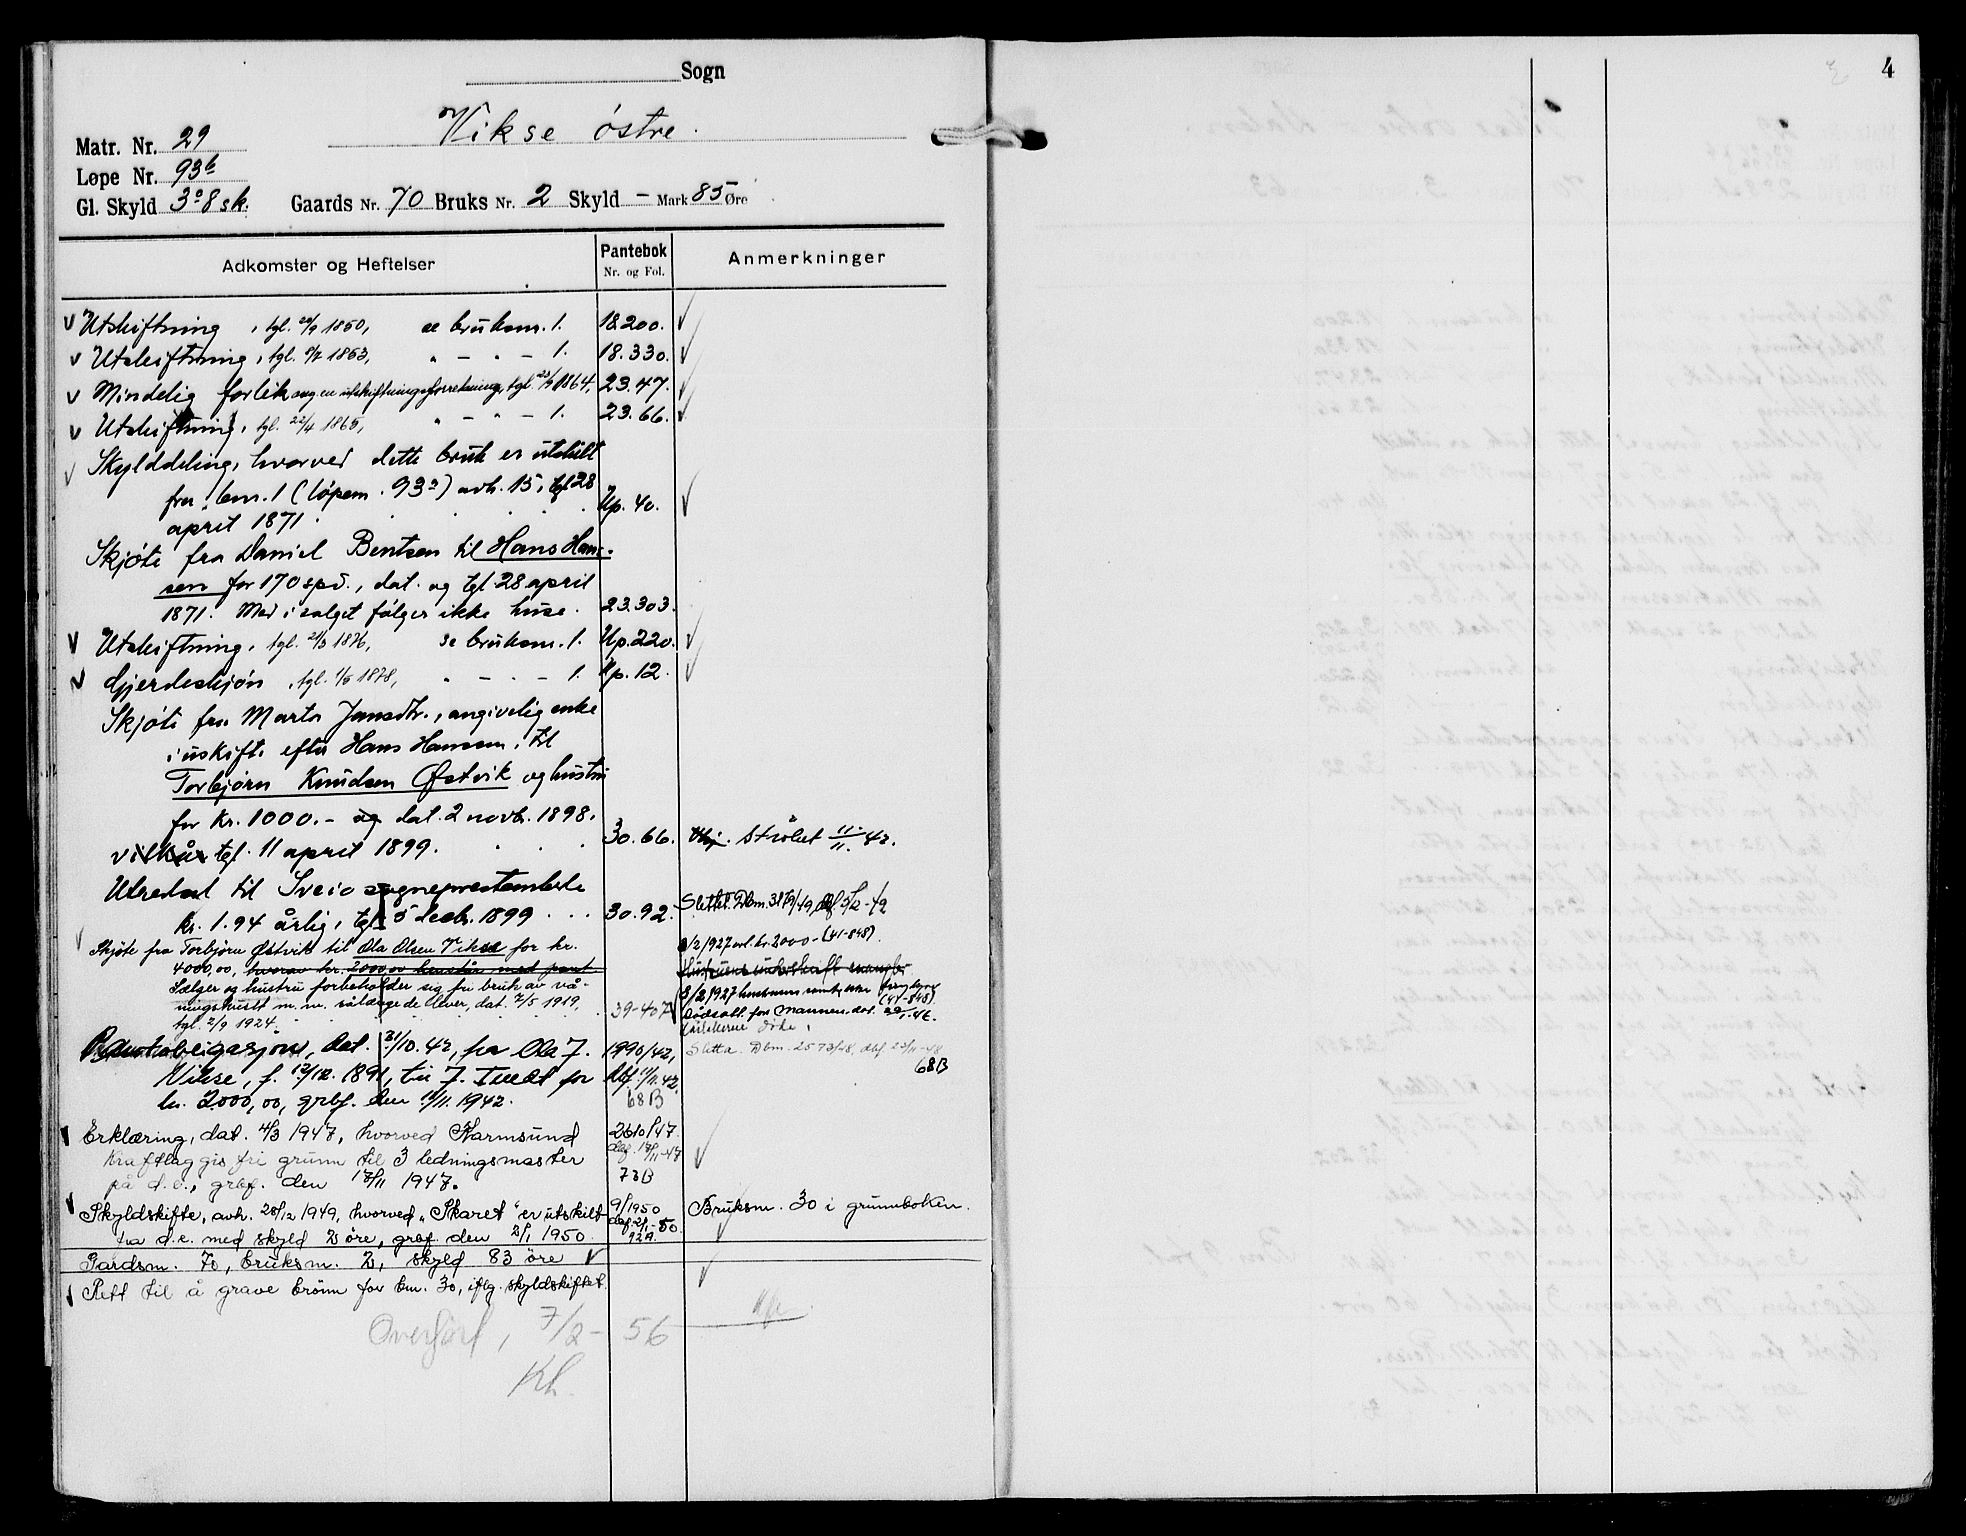 Sogn
Vikse østre.
Matr. Nr. 29
Løpe Nr. 93b
Gl. Skyld 3 o 8 sk. Gaards Nr. 70 Bruks Nr. 2 Skyld – Mark 85 Øre
Adkomster og Heftelser Pantebok Nr. og Fol. Anmerkninger
Utskiftning, tgl. 1850, se bruksnr. 1. 18.200.
Utskiftning, tgl. 1863, " – " – 1. 18.330.
Mindelig forlik ang. en utskiftningsforretning, tgl. 1864, 23.47.
Utskiftning, tgl. 22/4 1865, " – " – 1. 23.66.
Skylddeling, hvorved dette bruk er utskilt
fra bnr. 1 (løpenr. 93a) avh. 15, tgl 28
april 1871. Up. 40.
Skjøte fra Daniel Bentsen til Hans Han-
sen for 170 spd., dat. og tgl. 28 april
1871. Med i salget følger ikke huse. 23.303.
Utskiftning, tgl. 1876, se bruksnr. 1. Up. 220.
Gjerdeskjøn, tgl. 1878, " – " – 1. Up. 12.
Skjøte fra Marta Jansdtr., angivelig enke
i uskifte efter Hans Hansen, til
Torbjørn Knudsen Østvik og hustru
for kr. 1000.– og dat. 2 novbr. 1898.
vilkår tgl. 11 april 1899. 30.66. strøket 11/11.42.
Utredsel til Sveio sogneprestembede
kr. 1.94 årlig, tgl 5 decbr. 1899 30.92. Slettet. Dbnr.
Skjøte fra Torbjørn Østvik til Ola Olsen Vikse for kr.
4000,00, hvorav kr. 2000,00 henstår med pant
Sælger og hustru forbeholder sig fri bruk av vå-
ningshuset m.m. sålænge de lever, dat. 7/5 1919,
tgl. 2/9 1924. 39-407
8/2 1927 kr. 2000.- (41-848).
Hustruens underskrift mangler
8/2 1927 (41-848).
Dødsatt. for mannen, dat.
Pantobligasjon, dat. 31/10.42, fra Ola J. 1990/42,
Vikse, f. 1891, til J. Tveit for dbf. 11/11.42.
kr. 2000,00, grbf. den 11/11.1942. 68B
Sletta. Dbnr. 2573/48, dbf.
68B
Erklæring, dat. 4/3 1947, hvorved Karmsund 2610/47.
Kraftlag gis fri grunn til 3 ledningsmaster dbf. 17/11-47
på d.e., grbf. den 17/11 1947. 73B
Skyldskifte, avh. 28/12 1949, hvorved "Skaret" er utskilt 9/1950 Bruksnr. 30 i grunnboken.
fra d.e. med skyld 2 øre, grbf. den 2/1 1950. dbf. 2/1-50. 92A.
Gardsnr. 70, bruksnr. 2, skyld 83 øre
Rett til å grave brønn for bnr. 30, iflg. skyldskiftet.
Overført, 7/2 – 56
Kh.
4